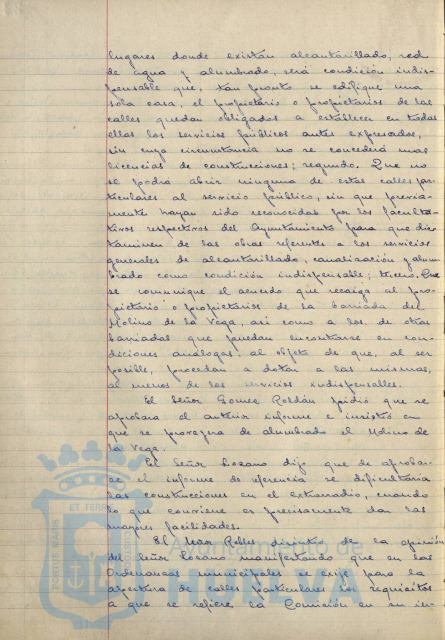 lugares donde existan alcantarillado, red
de agua y alumbrado, será condición indis-
pensable que, tan pronto se edifique una
sola casa, el propietario o propietarios de las
calles quedan obligados a establecer en todas
ellas los servicios públicos antes expresados,
sin cuya circunstancia no se concederá mas
licencias de construcciones; segundo. Que no
se podrá abrir ninguna de estas calles par-
ticulares al servicio público, sin que previa-
mente hayan sido reconocidas por los faculta-
tivos respectivos del Ayuntamiento para que dic-
taminen de las obras referente a los servicios
generales de alcantarillado, canalización y alum-
brado como condición indispensable; tercero. Que
se comunique el acuerdo que recaiga al pro-
pietario o propietarios de la barriada del
Molino de la Vega, asi como a los de otras
barriadas que puedan encontrarse en con-
diciones análogas, al objeto de que, al ser
posible, procedan a dotar a las mismas,
al menos de los servicios indispensables.
El Señor Gomez Roldán pidió que se
aprobara el anterior informe e insistió en
que se proveyera de alumbrado el Molino de
la Vega.
El Señor Lozano dijo que de aprobar-
se el informe de referencia se dificultaria
las construcciones en el extrarradio, cuando
lo que conviene es precisamente dar las
mayores facilidades.
El Señor Robles disintió de la opinión
del Señor Lozano manifestando que en las
Ordenanzas municipales se exije para la
apertura de calles particulares los requisitos
a que se refiere la Comisión en su in-
Ayuntamiento de
HUELVA
PORTUS MARIS
ET TERRAE